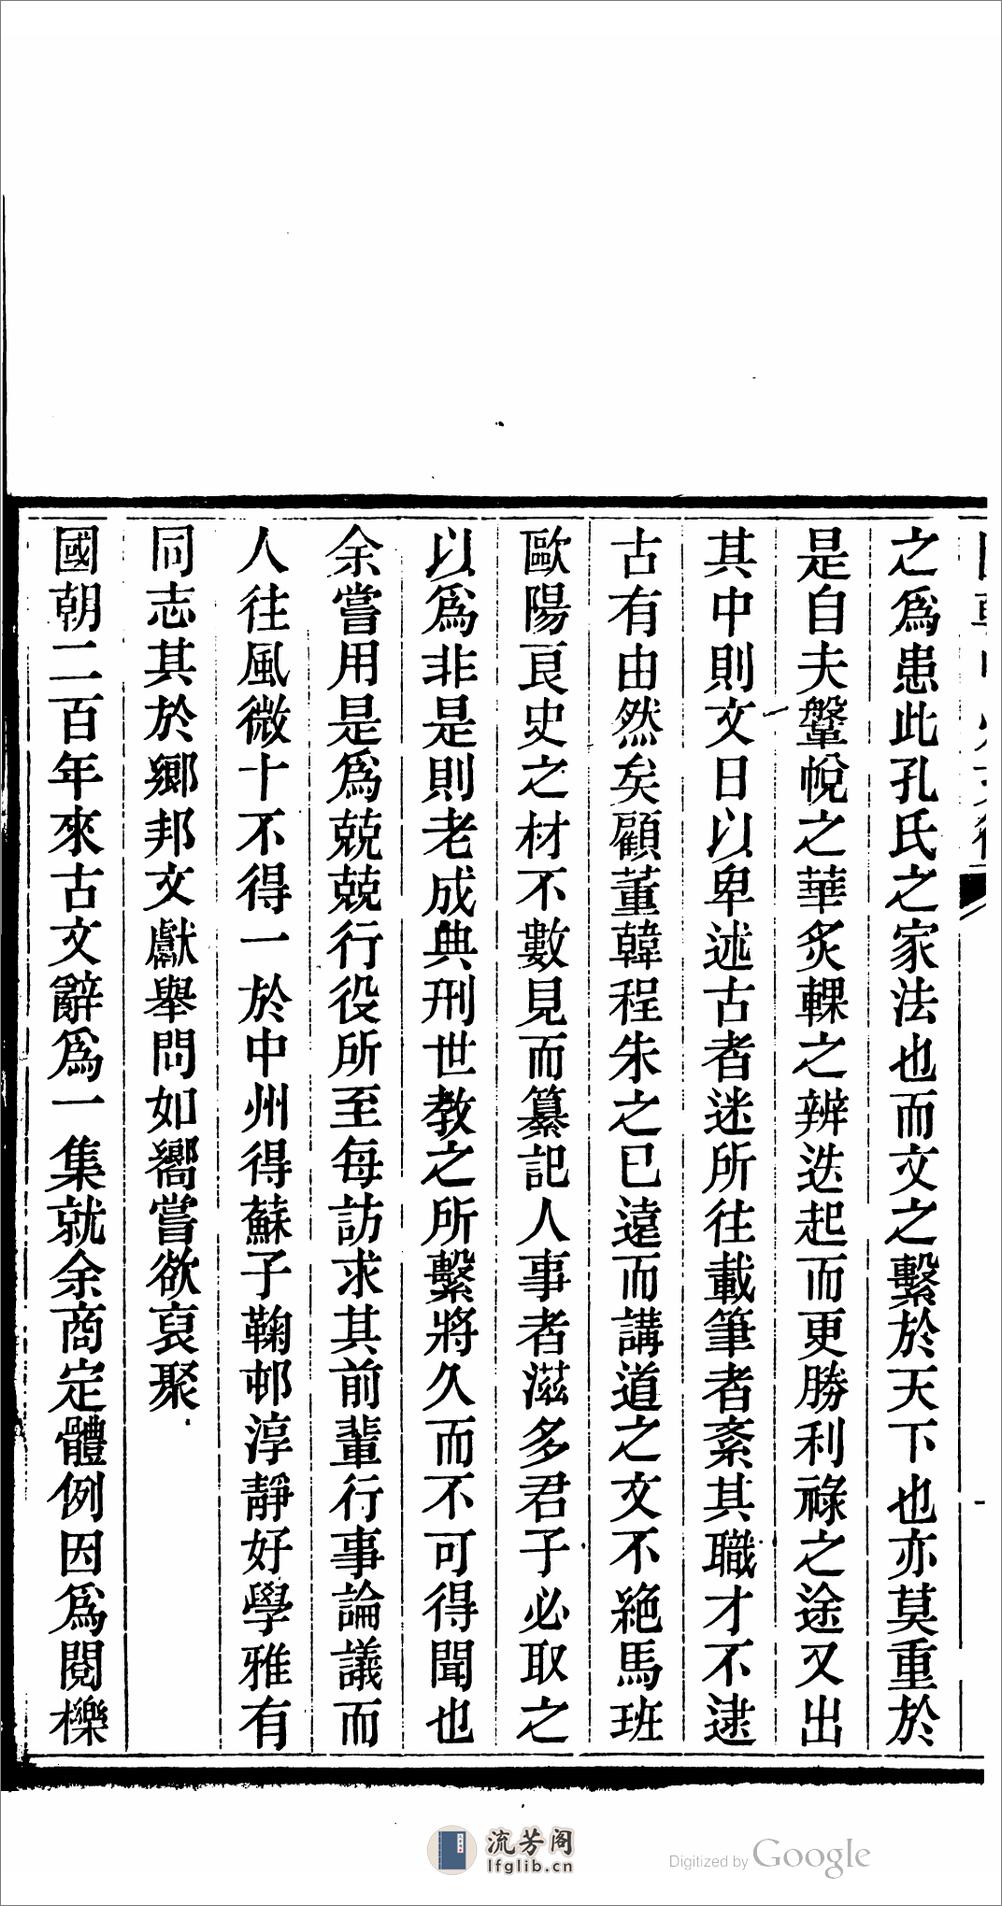 之爲患此孔氏之家法也而文之繫於天下也亦莫重於
是自夫鞶帨之華炙輠之辨迭起而更勝利祿之途又出
其中則文日以卑述古者迷所往載筆者紊其職才不逮
古有由然矣顧董韓程朱之已遠而講道之文不絕馬班
歐陽良史之材不數見而纂記人事者滋多君子必取之
以爲非是則老成典刑世教之所繫將久而不可得聞也
余嘗用是爲兢兢行役所至每訪求其前輩行事論議而
人往風微十不得一於中州得蘇子鞠邨淳靜好學雅有
同志其於鄉邦文獻舉問如嚮嘗欲裒聚
國朝二百年來古文辭爲一集就余商定體例因爲閱櫟
流芳阁
lfglib.cn
Digitized by Google